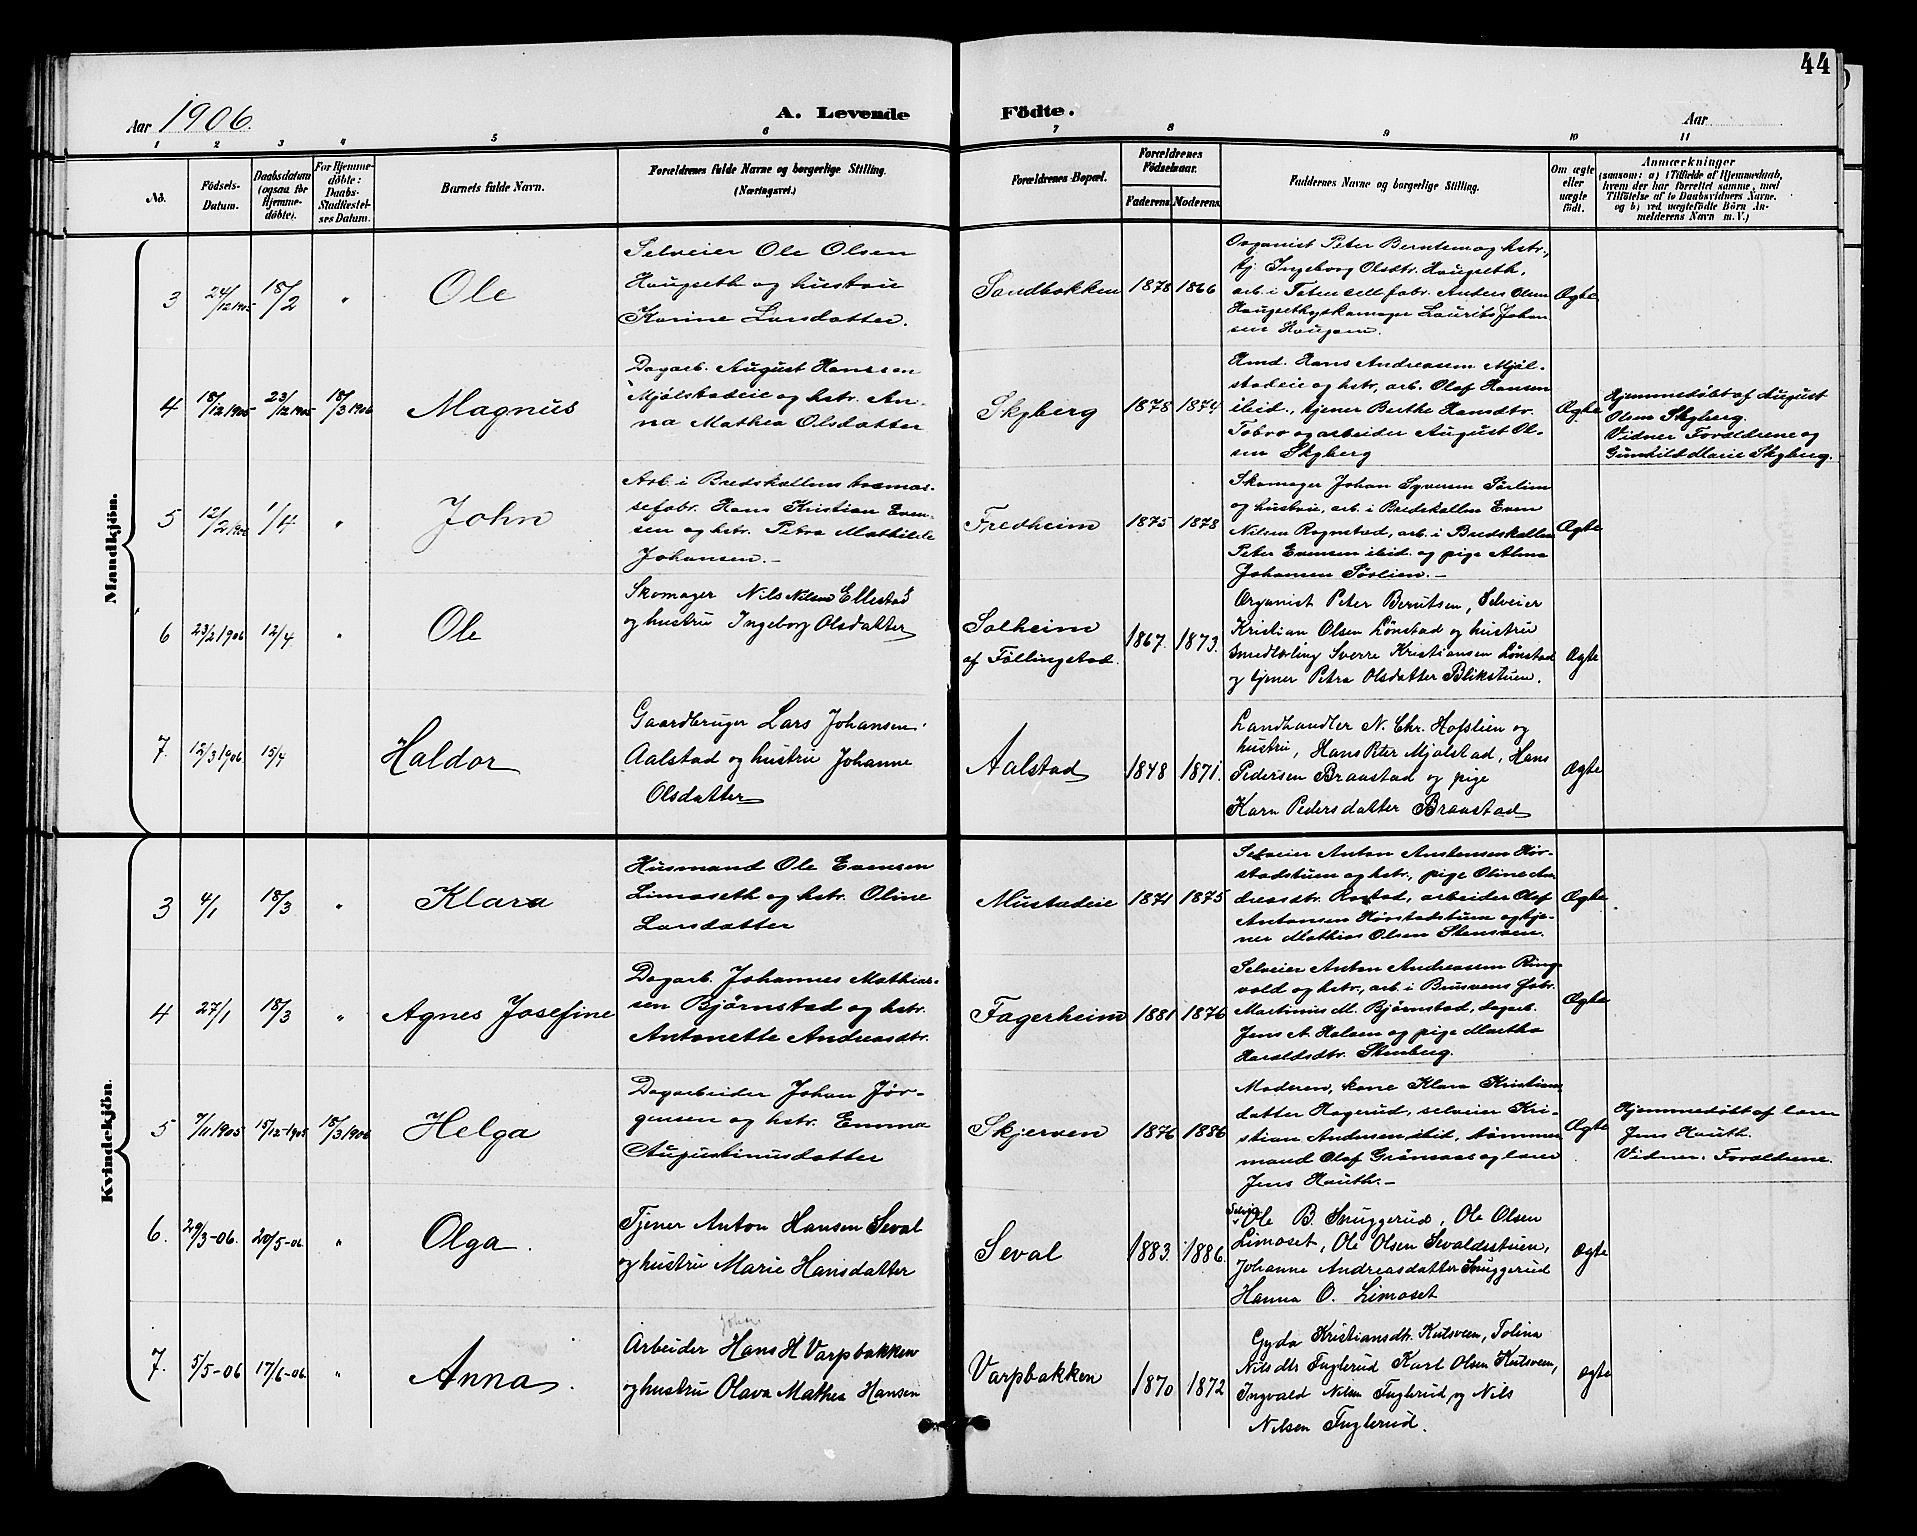 44
Aar 1906.
A. Levende Födte.
Aar
1 2 3 4 5 6 7 8 9 10 11
No.
Födsels-
Datum.
Daabsdatum
(ogsaa for
Hjemme-
döbte).
For Hjemme-
döbte:
Daabs-
Stadfæstel-
ses Datum.
Barnets fulde Navn.
Forældrenes fulde Navne og borgerlige Stilling.
(Næringsvei.)
Forældrenes Bopæl.
Forældrenes
Födselsaar.
Faderens. Moderens.
Faddernes Navne og borgerlige Stilling.
Om ægte
eller
uægte
født.
Anmærkninger
(saasom: a) i Tilfælde af Hjemmedaab,
hvem der har forrettet samme, med
Tilföielse af to Daabsvidners Navne.
og b) ved uægtefödte Börn An-
melderens Navn m. V.)
Mandkjön.
3 24/12 1905 18/2 " Ole
Selveier Ole Olsen
Haugseth og hustru
Karine Larsdatter.
Sandbakken 1878 1866
Organist Peter Berntsen og hstr.,
tj. Ingeborg Olsdtr. Haugseth,
arb. i Toten cellfabr. Anders Olsen
Haugseth og skomager Laurits Johan
sen Haugen.
Ægte
4 18/12 1905 23/12 1905 18/3 1906 Magnus
Dagarb. August Hanssen
Mjølstadeie og hstr. An-
na Mathea Olsdatter
Skyberg 1878 1874
Hmd. Hans Andreassen Mjøl-
stadeie og hstr., arb. Olaf Hansen
ibid., tjener Berthe Hansdtr.
Tobro og arbeider August Ol-
sen Skyberg
Ægte
Hjemmedøbt af August
Olsen Skyberg.
Vidner Forældrene og
Gunhild Marie Skyberg.
5 12/2 1906 1/4 " John
Arb. i Bredskallens træmas-
sefabr. Hans Kristian Even-
sen og hstr. Petra Mathilde
Johansen.-
Fredheim 1875 1878
Skomager Johan Syversen Sørlien
og hustru, arb. i Bredskallen Even
Nilsen Rognstad, arb. i Bredskallen
Peter Evensen ibid. og pige Alma
Johansen Sørlien.-
Ægte
6 23/2 1906 12/4 " Ole
Skomager Nils Nilsen Ellestad
og hustru Ingeborg Olsdatter
Solheim
afFøllingstad.
1867. 1873.
Organist Peter Berntsen, Selveier
Kristian Olsen Lønstad og hustru
Smedlærling Sverre Kristiansen Lønstad
og tjener Petra Olsdatter Blikstuen.
Ægte
7. 12/3 1906 15/4 Haldor
Gaardbruger Lars Johansen
Aalstad og hustru Johanne
Olsdatter
Aalstad 1848 1871.
Landhandler N. Chr. Hofslien og
hustru, Hans Peter Mjølstad, Hans
Pedersen Braastad og pige
Karn Pedersdatter Braastad
Ægte
Kvindekjön.
3 4/1 18/3 " Klara
Husmand Ole Evensen
Limoseth og hstr. Oline
Larsdatter
Mustadeie 1871 1875
Selveier Anton Anstensen Hør-
stadstuen og hstr., pige Oline An-
dreasdtr. Rostad, arbeider Olaf
Antonsen Hørstadstuen og tje-
ner Mathias Olsen Stensveen.
Ægte
4 27/1 18/3 " Agnes Josefine
Dagarb. Johannes Mathias-
sen Bjørnstad og hstr.
Antonette Andreasdtr.
Fagerheim 1881 1876
Selveier Anton Andreassen Ring-
vold og hstr., arb. i Brusvens fabr.
Martinius M. Bjørnstad, dagarb.
Jens A. Halsen og pige Martha
Haraldsdtr. Stenberg.
Ægte
5 7/11 1905 15/12-1905 18/3 1906 Helga
Dagarbeider Johan Jør-
gensen og hstr. Emma
Augustinusdatter
Skjerven 1876 1886
Moderen, kone Klara Kristians
datter Hagerud, selveier Kri-
stian Andersen ibid, tømmer
mand Olaf Grønaas og lærer
Jens Hauth.-
Ægte
Hjemmedøbt af lærer
Jens Hauth.
Vidner: Forældrene.
6. 29/3-06. 20/5-06. " Olga.
Tjener Anton Hansen Seval
og hustru Marie Hansdatter
Seval 1883. 1886.
Selveier Ole B. Snuggerud, Ole Olsen
Limoset, Ole Olsen Sevaldsstuen,
Johanne Andreasdatter Snuggerud
Hanna O. Limoset
ægte
7. 5/5-06 17/6-06. " Anna.
Johan
Arbeider Hans H Varpbakken
og hustru Olava Mathea Hansen
Varpbakken 1870 1872
Gyda Kristiansdtr. Kutsveen, Tolina
Nilsdtr Fuglerud Karl Olsen Kutsveen,
Ingvald Nilsen Fuglerud, og Nils
Nilsen Fuglerud.
ægte